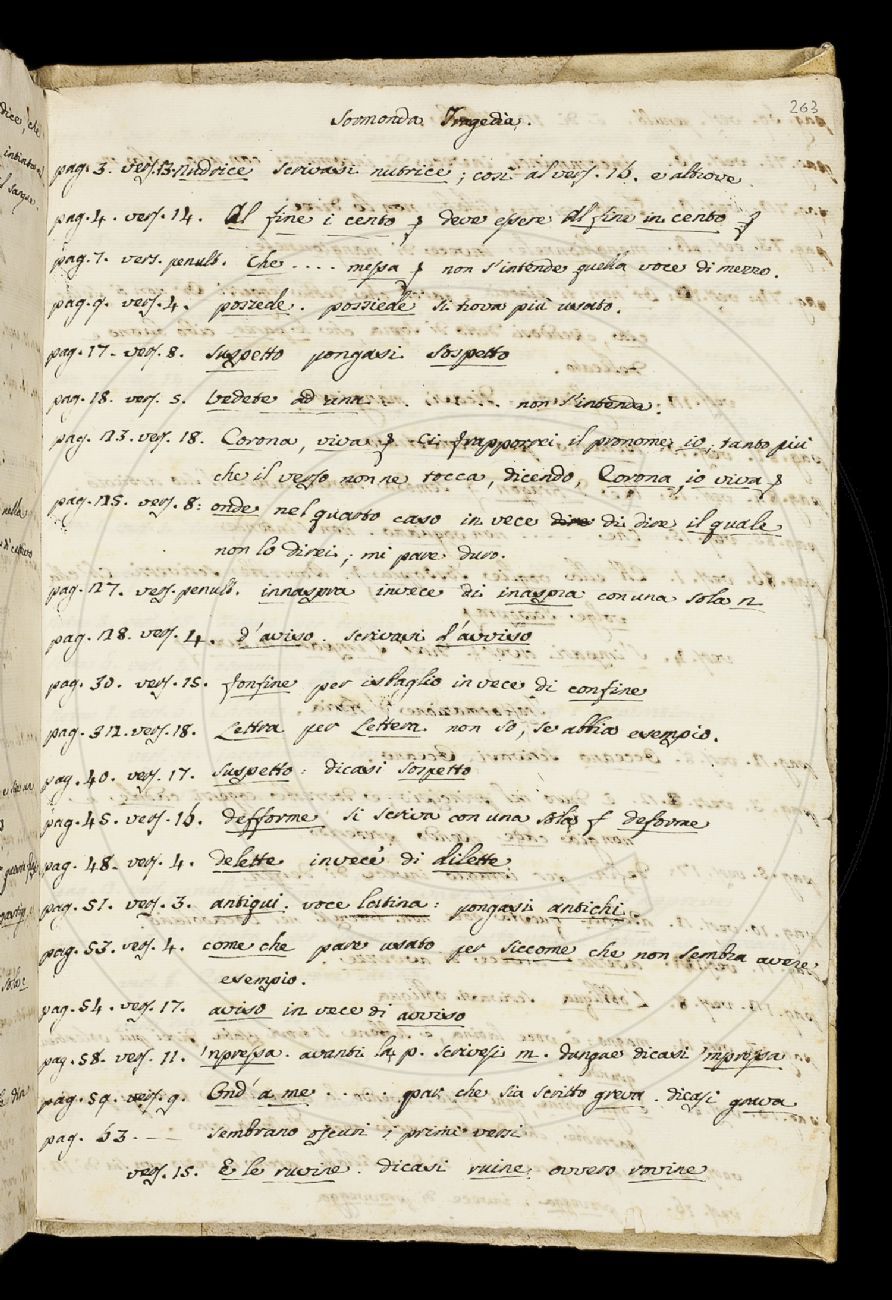 263
Sormonda Tragedia.
pag. 3. vers. 13. nudrice scrivasi nutrice; così al vers. 16. e altrove
pag. 4. vers. 14. Al fine i cento deve essere Al fine in cento
pag. 7. vers. penult. Che .... messa non s'intende quella voce di mezzo.
pag. 9. vers. 4. possede. possiede si trova più usato.
pag. 17. vers. 8. suspetto pongasi sospetto
pag. 18. vers. 5. Vedete ad una ... .... non s'intende.
pag. 23. vers. 18. Corona, viva Ci frapporrei il pronome io, tanto più
che il verso non ne tocca, dicendo, Corona, io viva
pag. 25. vers. 8: onde nel quarto caso in vece dire di dire il quale
non lo direi; mi pare duro.
pag. 27. vers. penult. innaspra invece di inaspra con una sola n
pag. 28. vers. 4. d'aviso. scrivasi d'avviso
pag. 30. vers. 15. fonfine per isbaglio in vece di confine
pag. 32. vers. 18. Lettra per Lettera non so, se abbia esempio.
pag. 40. vers. 17. suspetto: dicasi sospetto
pag. 45. vers. 16. defforme si scriva con una sola f deforme
pag. 48. vers. 4. delette invece di dilette
pag. 51. vers. 3. antiqui. voce latina: pongasi antichi
pag. 53. vers. 4. come che pare usato per siccome che non sembra avere
esempio.
pag. 54. vers. 17. aviso in vece di avviso
pag. 58. vers. 11. 'npressa. avanti la p. scrivesi m. dunque dicasi 'mpressa
pag. 59. vers. 9. Ond' a me .... par che sia scritto greva. dicasi grava
pag. 63. — sembrano oscuri i primi versi
vers. 15. E le ruvine. dicasi ruine, ovvero rovine